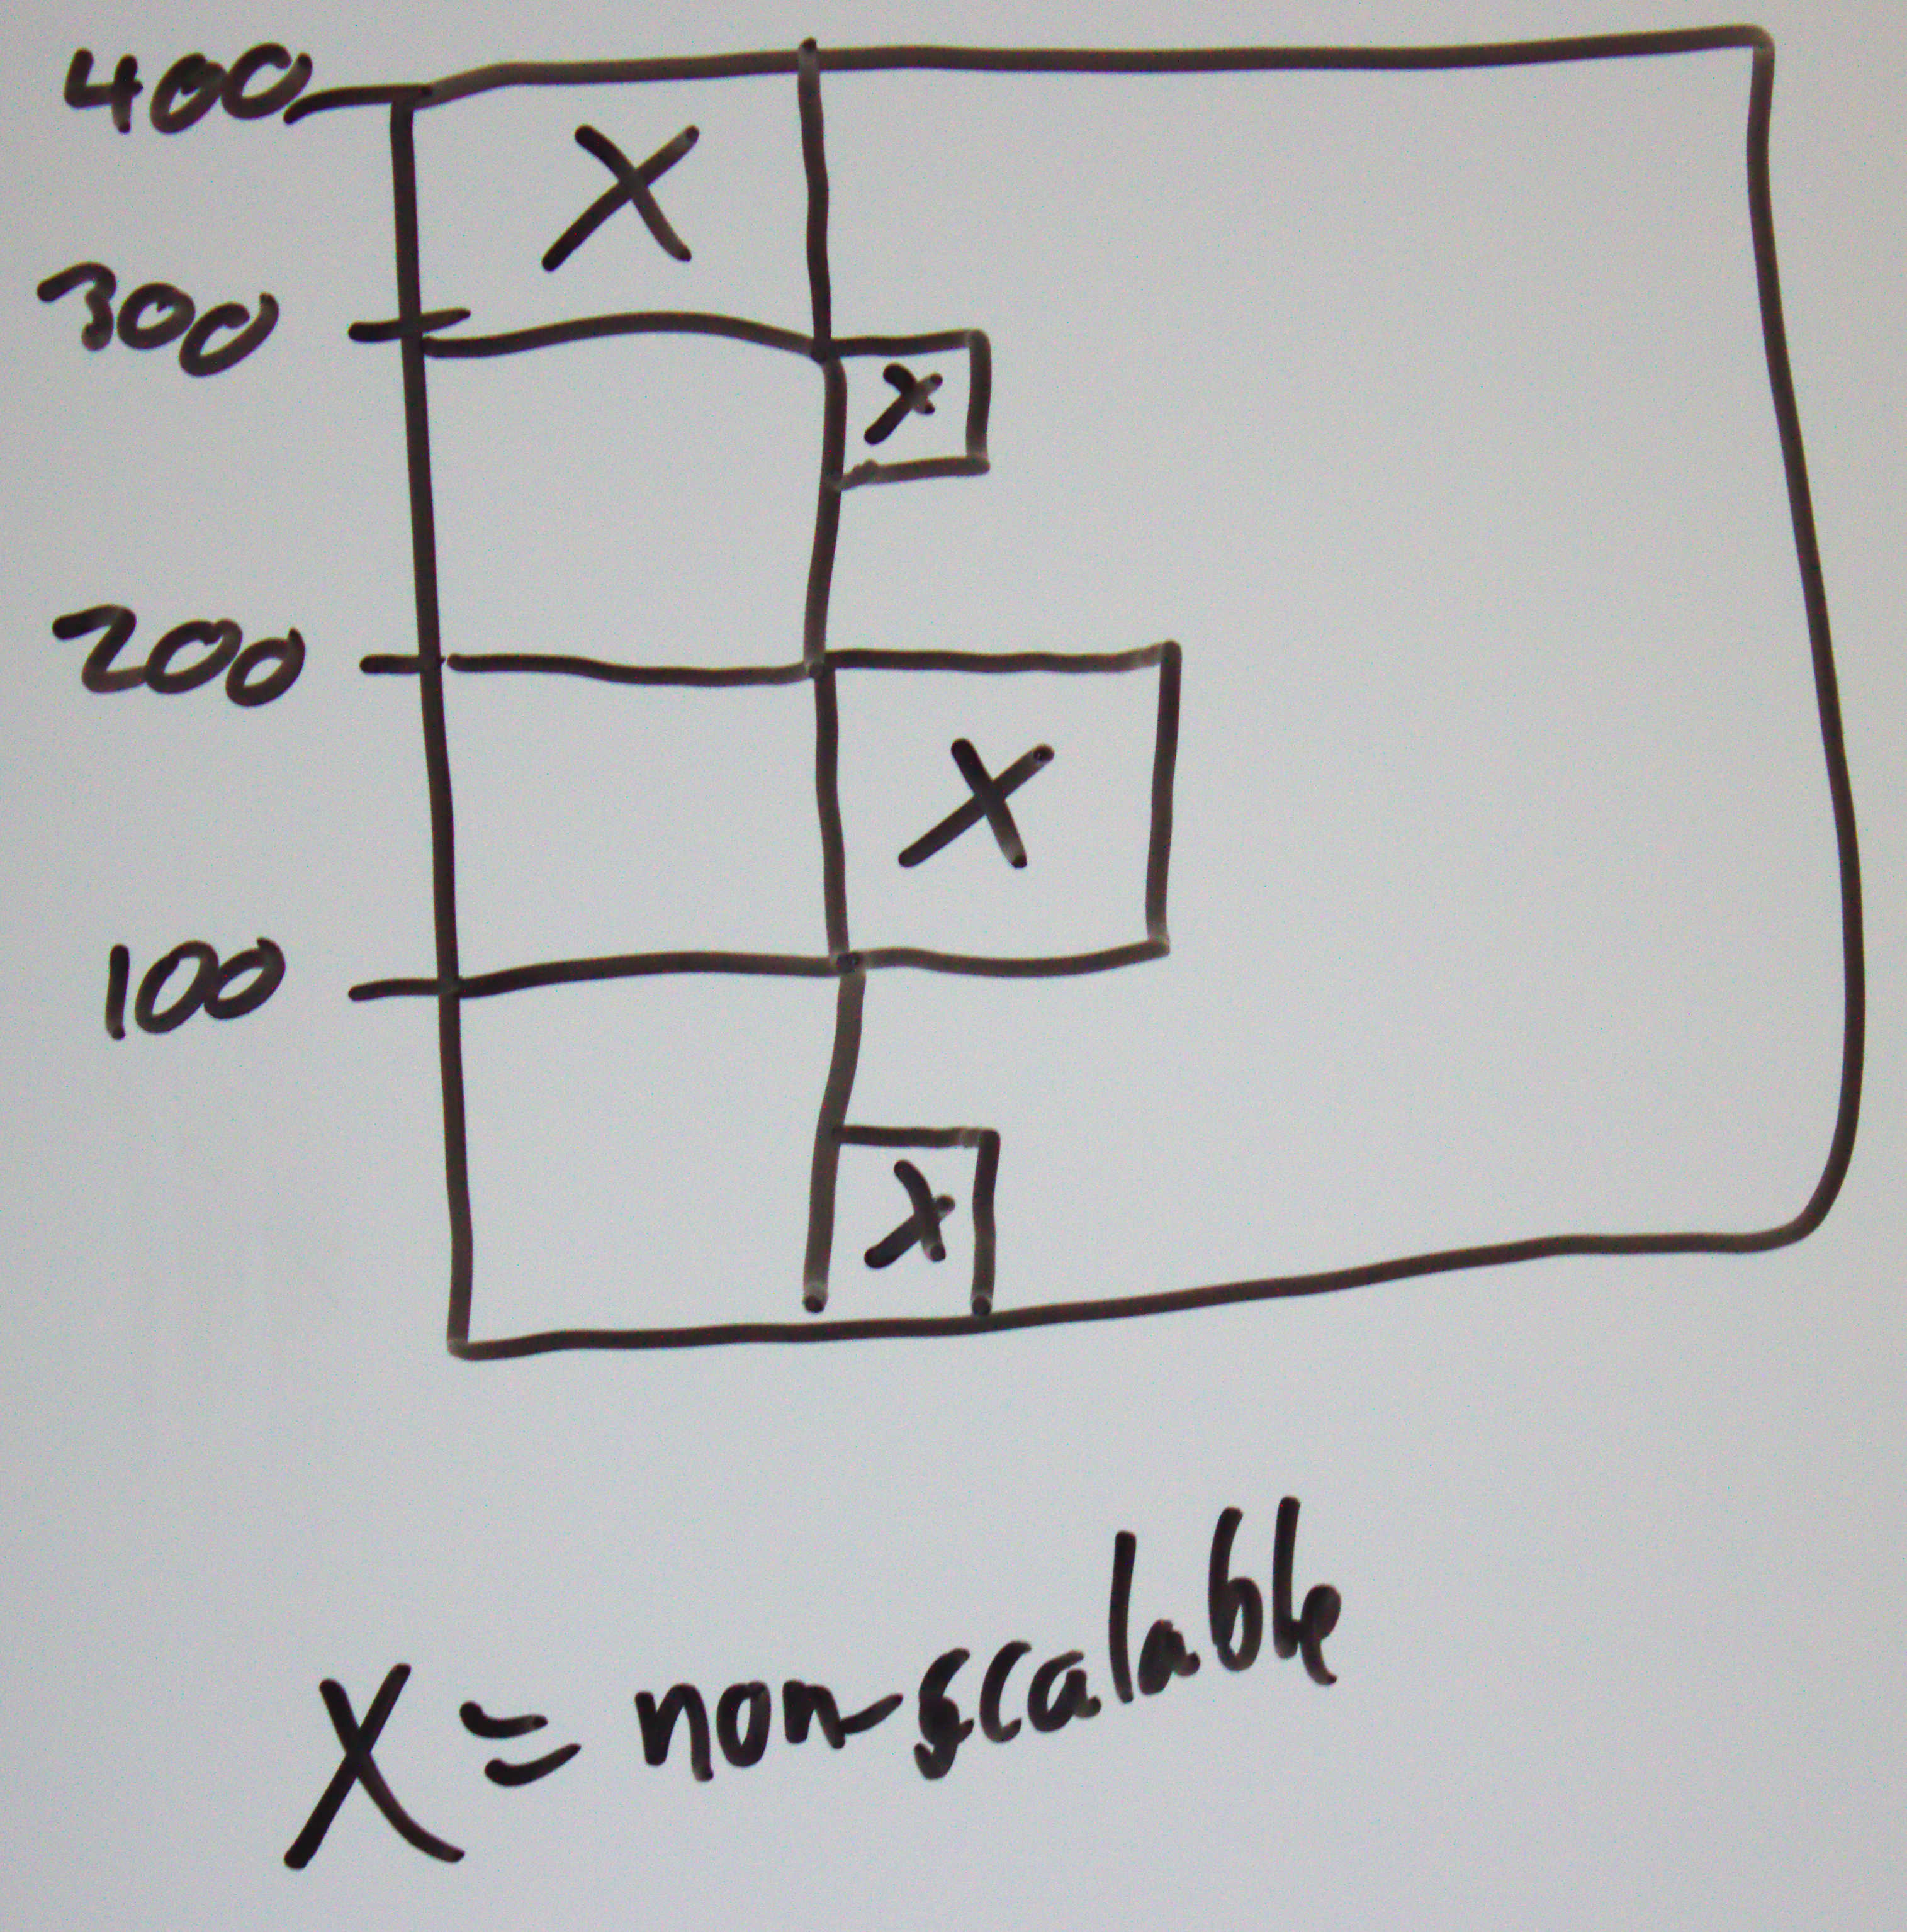 400
X
300
X
200
X
100
X
X = non-scalable